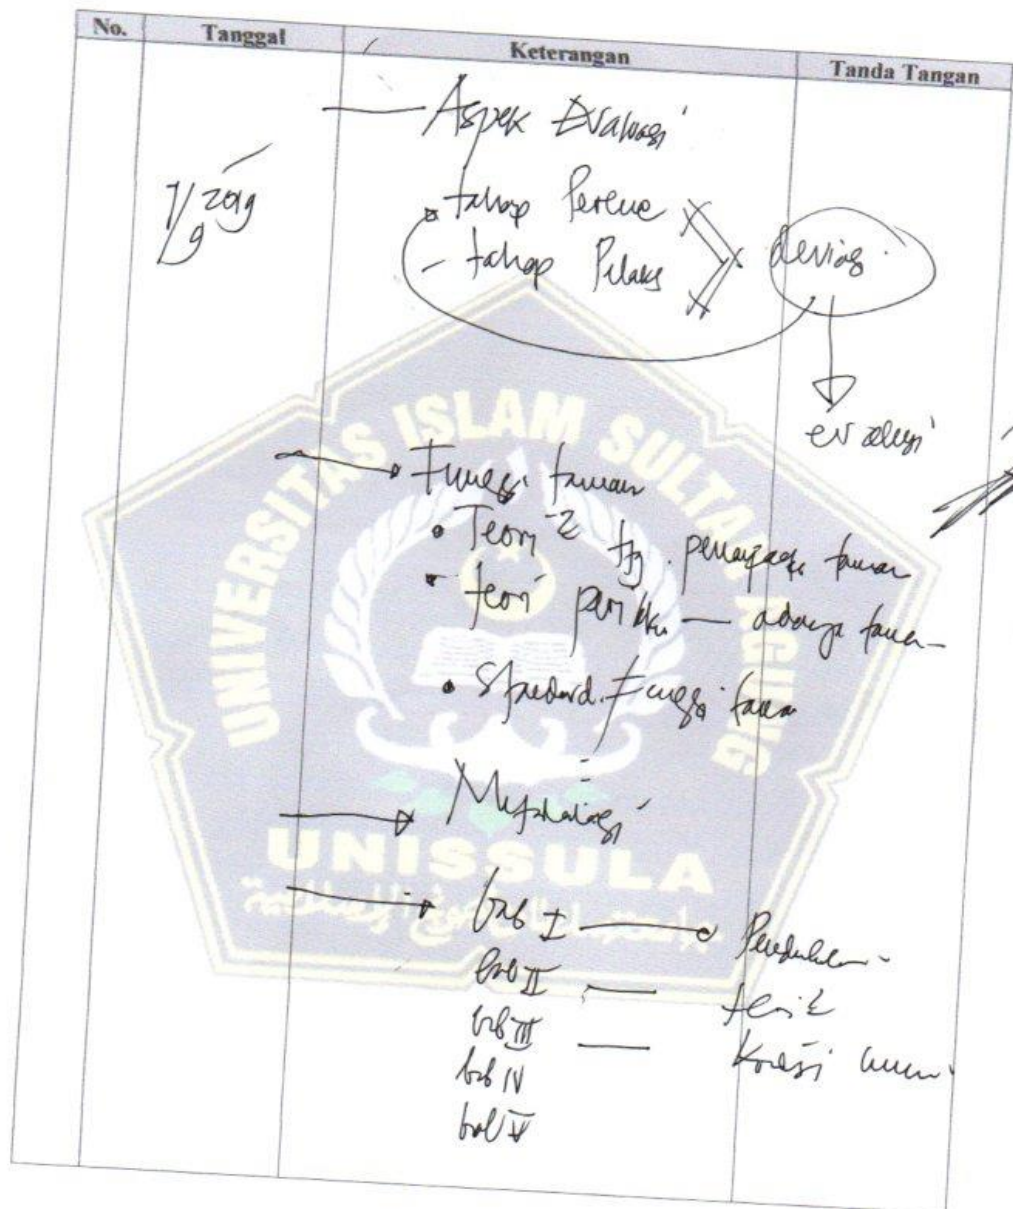 No. Tanggal Keterangan Tanda Tangan
Aspek Evaluasi
1/9 2019
tahap Perenc
- tahap Pelaks
deviasi
evaluasi
Fungsi taman
• Teori-2 ttg. taman
• teori perilaku — adanya taman
• Standard. Fungsi taman
Metodologi
bab I Pendahuluan
bab II — teori2
bab III — Kondisi umum
bab IV
bab V
UNIVERSITAS ISLAM SULTAN AGUNG
UNISSULA